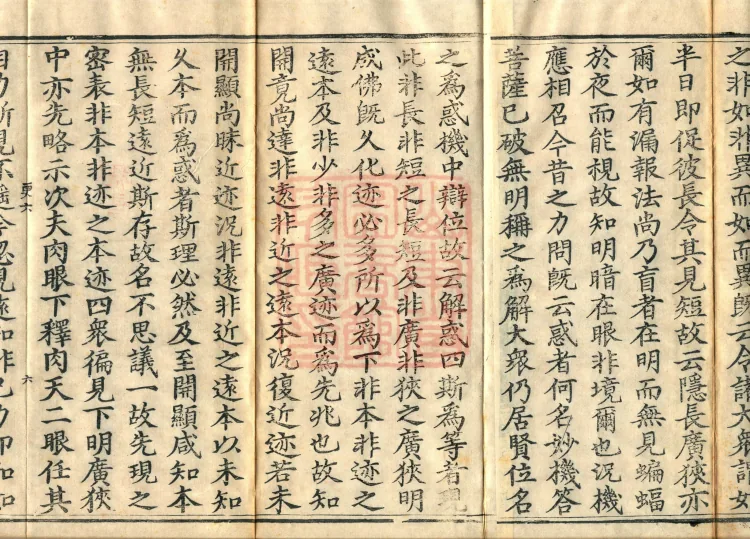 之非如非異而如而異既云令諸大衆謂如
半日即促彼長令其見短故云隱長廣狹亦
爾如有漏報法尚乃盲者在明而無見蝙蝠
於夜而能視故知明暗在眼非境爾也況機
應相召今昔之力問既云惑者何名妙機答
菩薩已破無明稱之爲解大衆仍居賢位名
之爲惑機中辯位故云解惑四斯爲等者現
此非長非短之長短及非廣非狹之廣狹明
成佛既久化迹必多所以爲下非本非迹之
遠本及非少非多之廣迹而爲先兆也故知
開竟尚達非遠非近之遠本況復近迹若未
開顯尚昧近迹況非遠非近之遠本以未知
久本而爲惑者斯理必然及至開顯咸知本
無長短遠近斯存故名不思議一故先現之
密表非本非迹之本迹四衆徧見下明廣狹
中亦先略示次夫肉眼下釋肉天二眼任其
更六
六